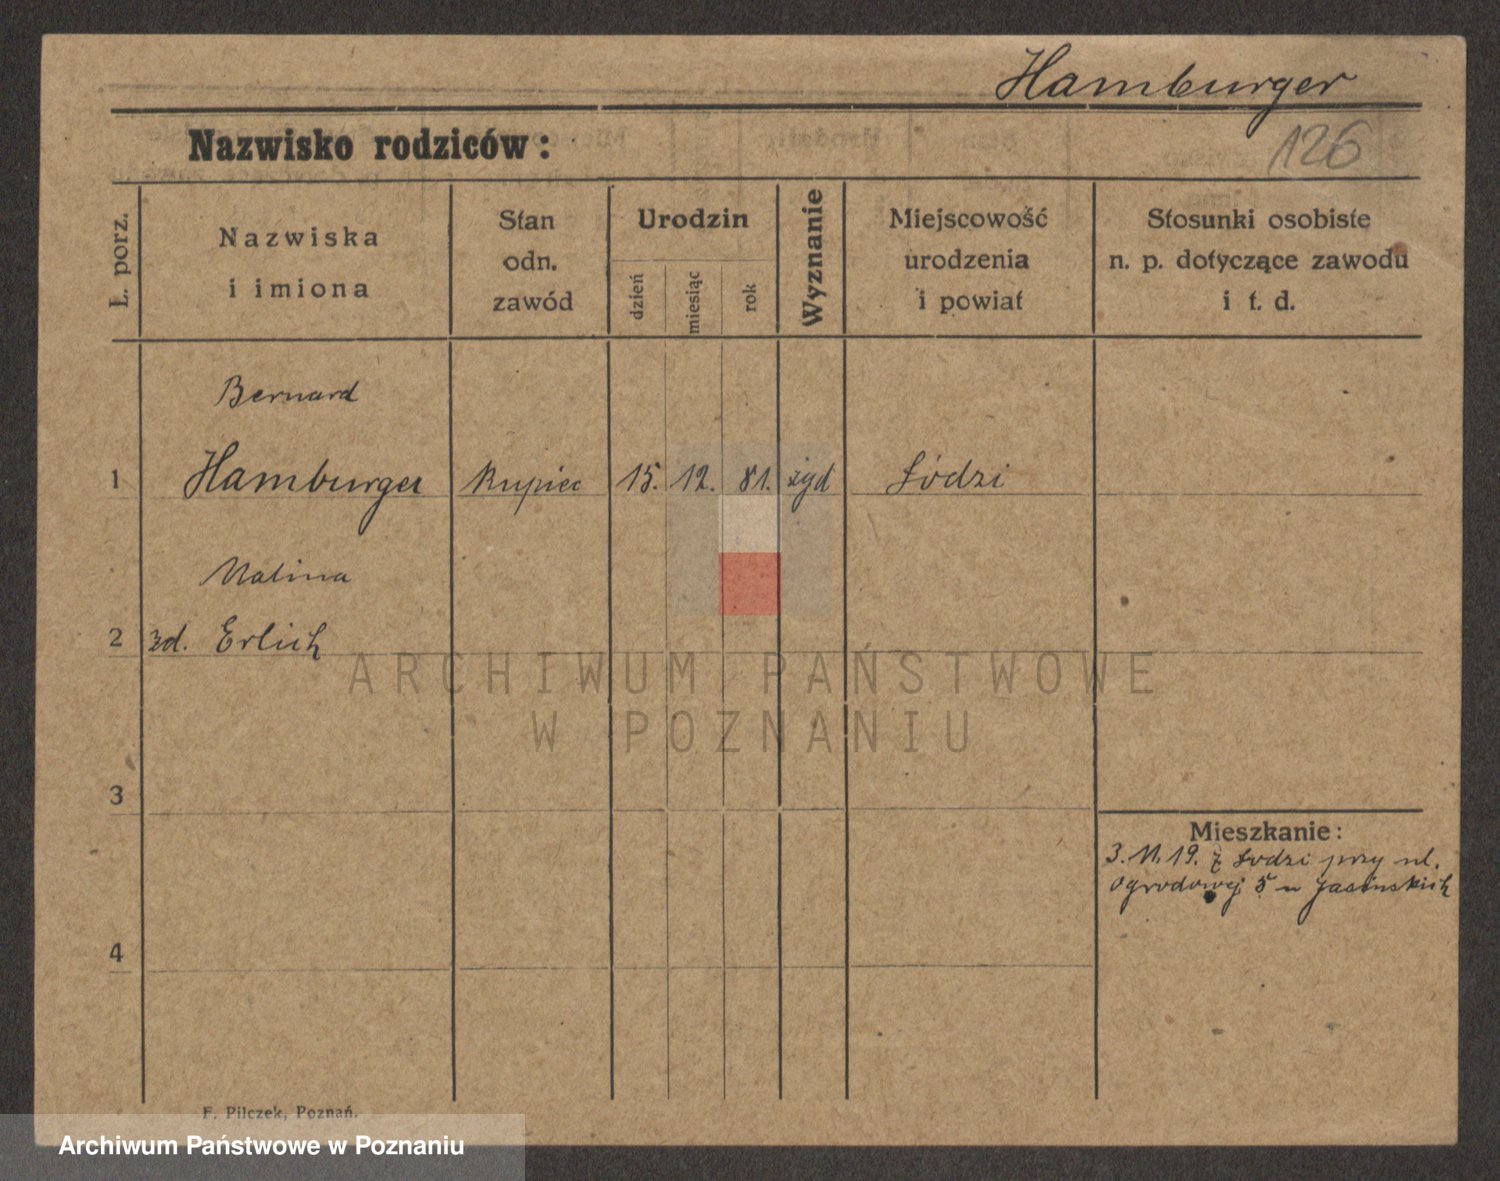 Hamburger
126
Nazwisko rodziców:
L. porz.
Nazwiska
i imiona
Stan
odn.
zawód
Urodzin
dzień
miesiąc
rok
Wyznanie
Miejscowość
urodzenia
i powiat
Stosunki osobiste
n. p. dotyczące zawodu
i t. d.
Bernard
1 Hamburger Kupiec 15. 12. 81. żyd Łodzi
Malina
2 zd. Erlich
3
4
Mieszkanie:
3. 11. 19. z Łodzi przy ul.
Ogrodowej 5 u Jasinskich
F. Pilczek, Poznań.
ARCHIWUM PAŃSTWOWE
W POZNANIU
Archiwum Państwowe w Poznaniu